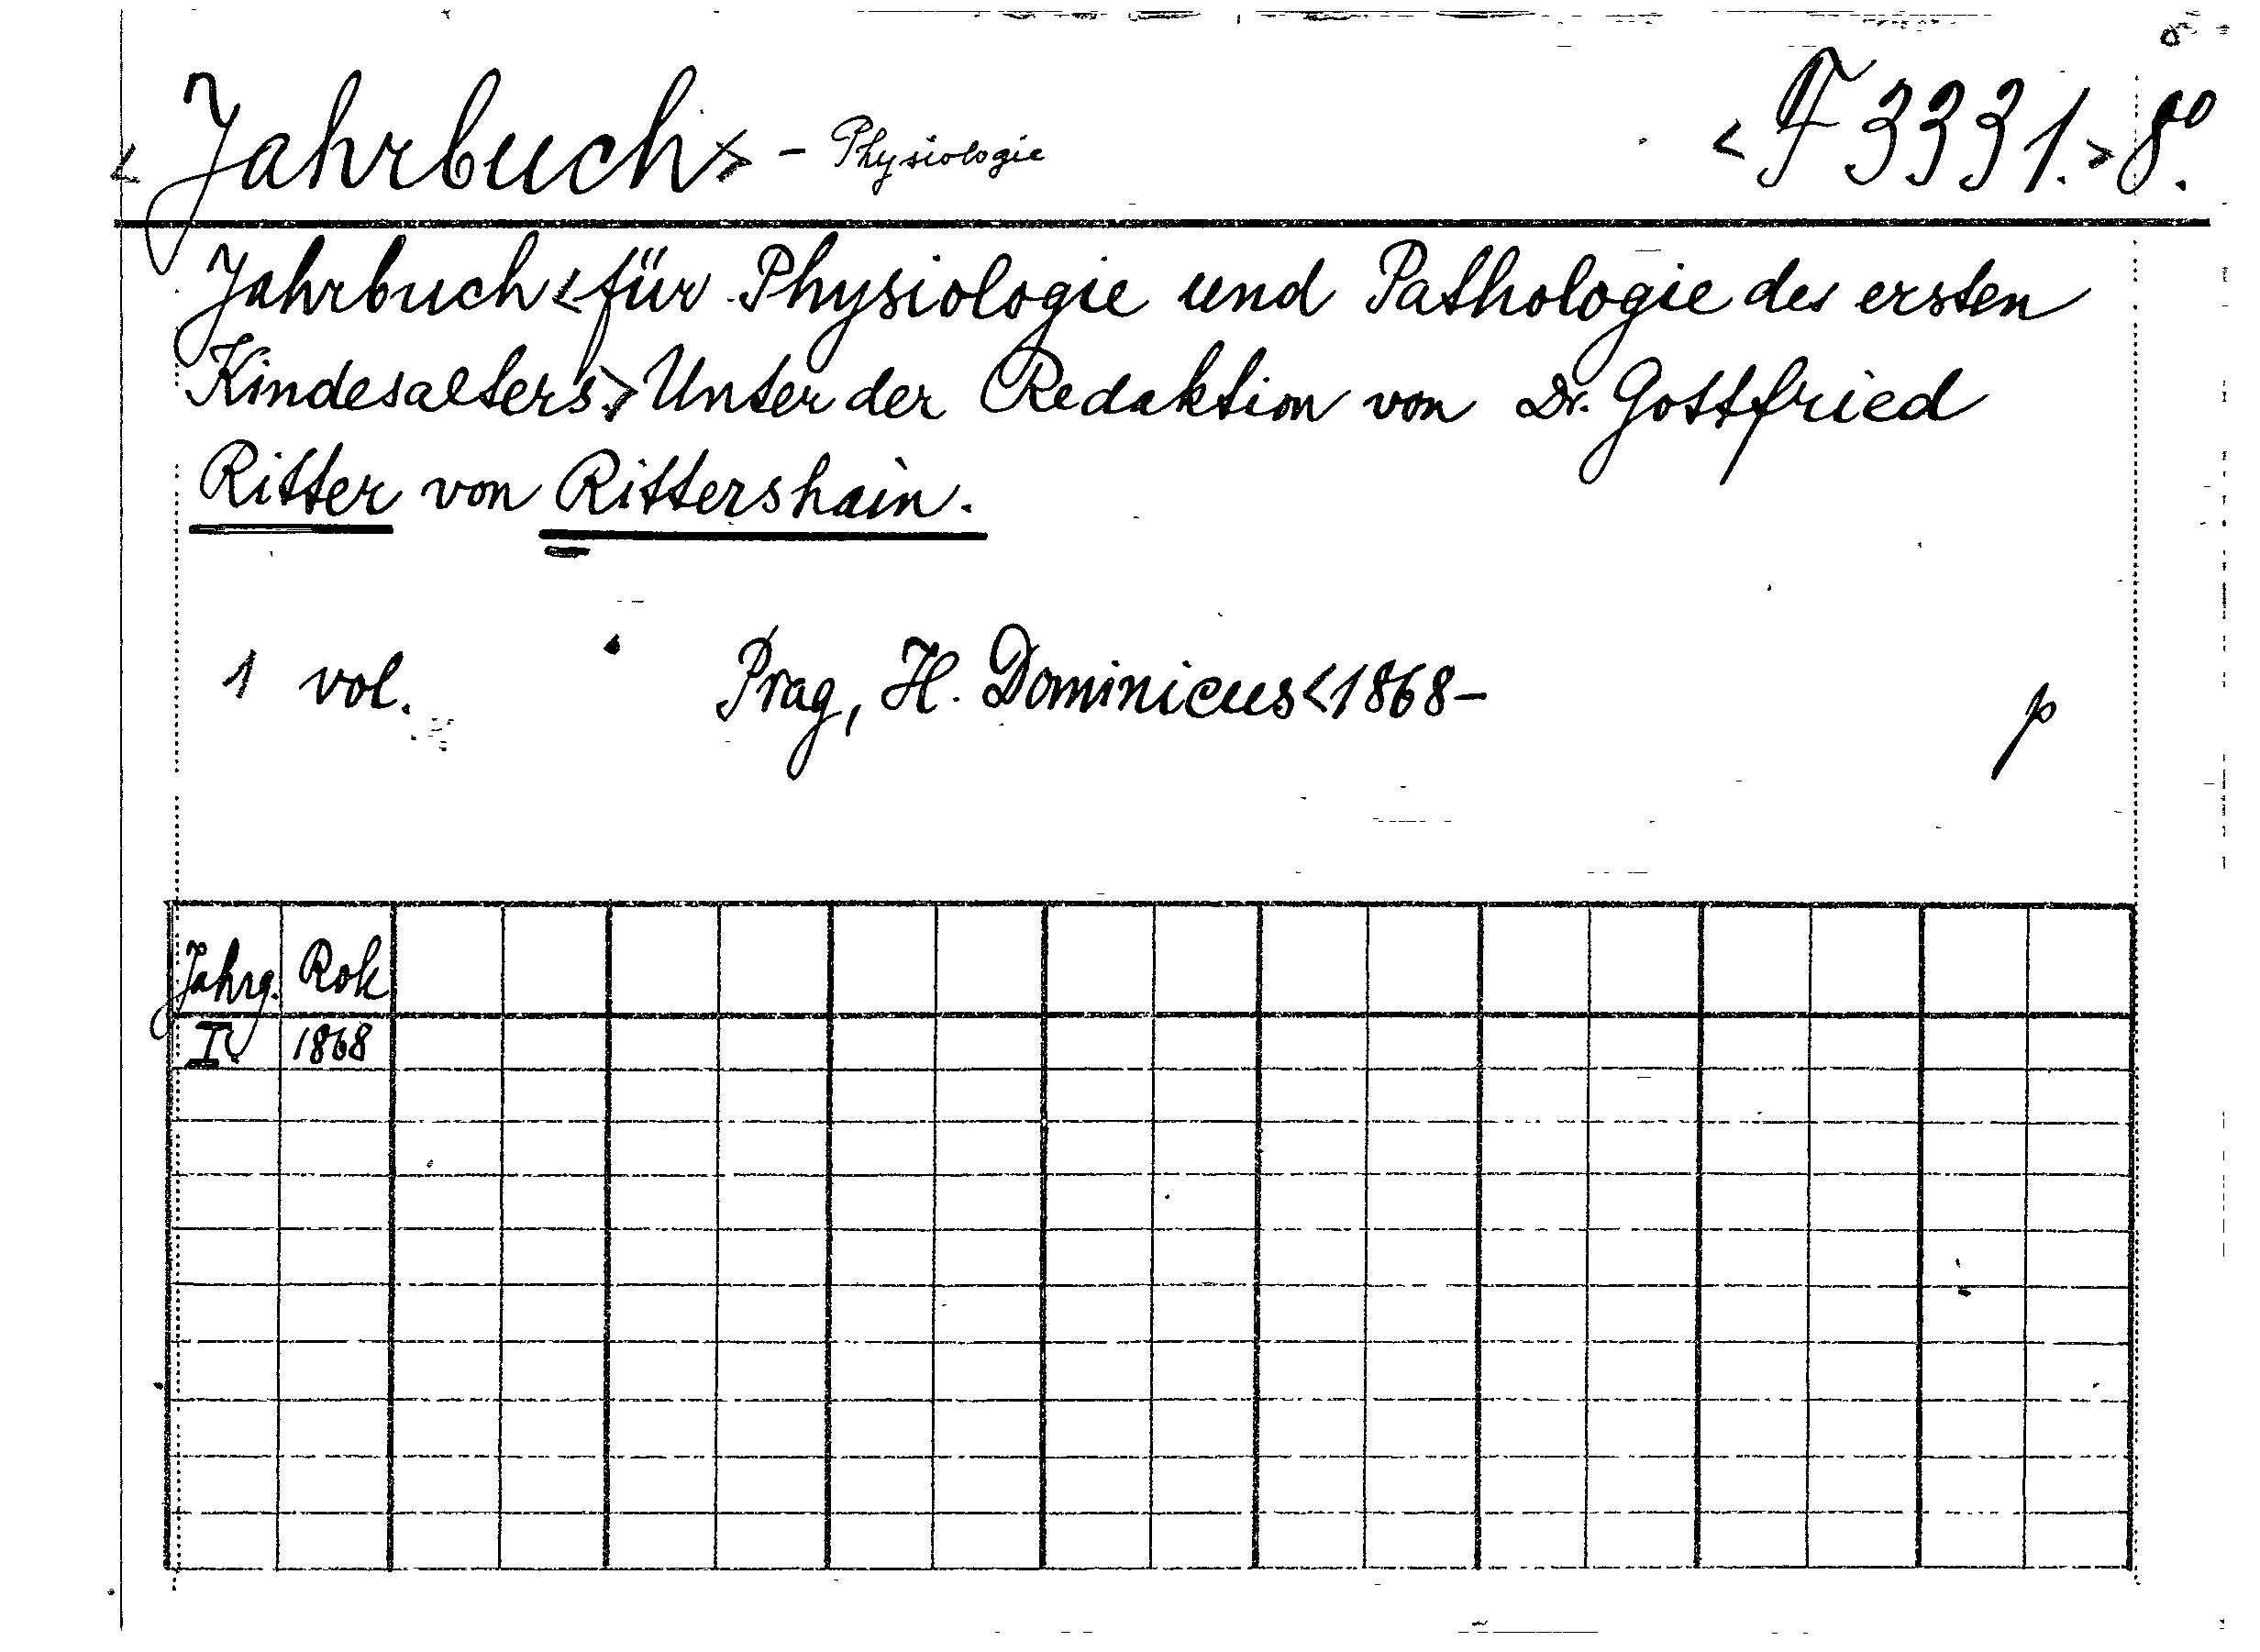 <Jahrbuch> - Physiologie <F 3331.> 8°.
Jahrbuch <für Physiologie und Pathologie des ersten
Kindesalters> Unter der Redaktion von Dr. Gottfried
Ritter von Rittershain.
1 vol. Prag, H. Dominicus <1868-
p
Jahrg. Rok
I. 1868